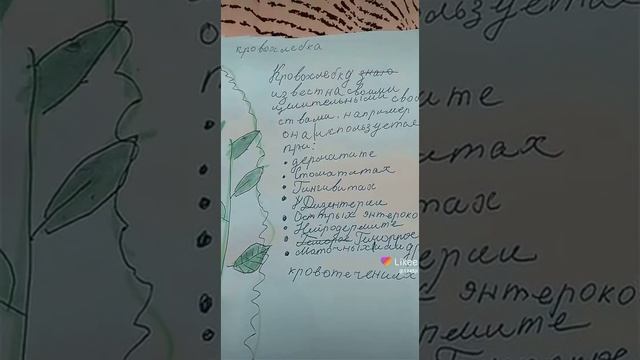 кровохлебка
Кровохлебку знаю
известна своими
целительными свой
ствами, например
она используется
при:
• дерматите
• Стоматитах
• Гингивитах
• Дизентерии
• Острых энтероко
• Нейродермите
• Геморрое
• Маточных и др
кровотечениях
Likee